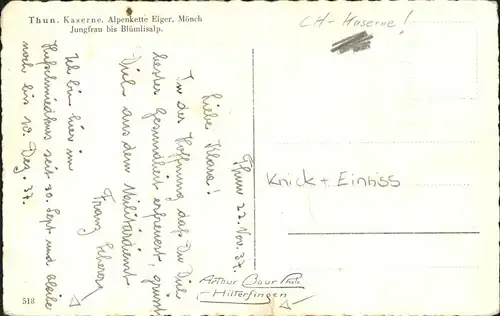 Thun. Kaserne. Alpenkette Eiger, Mönch
Jungfrau bis Blümlisalp.
CH-Kaserne!
Thun 22. Nov. 37.
Liebe Klara!
In der Hoffnung daß Du Dich
bester Gesundheit erfreuest, grüsst
Dich aus dem Militärdienst
Franz
Ich bin hier im
Hufschmiedkurs seit 20. Sept und bleibe
noch bis 10. Dez. 37.
Knick + Einriss
Arthur Baur Photo
-Hilterfingen
518